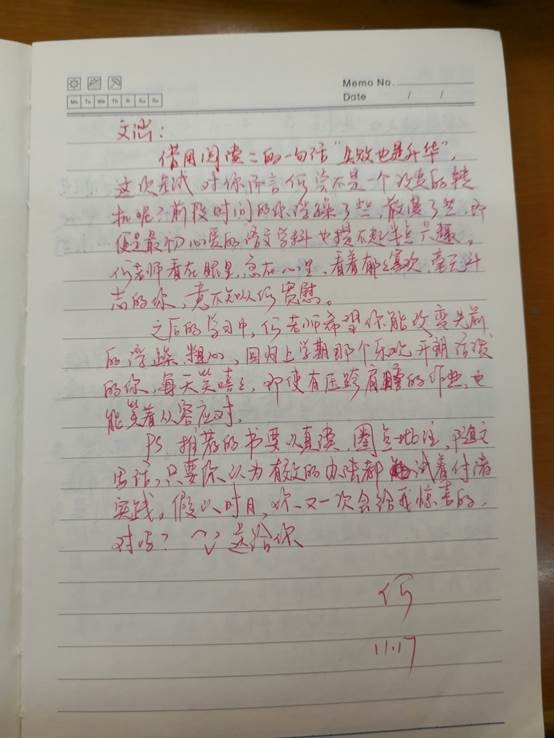 Memo No.
Date / /
Mo Tu We Th Fr Sa Su
文
借用阅读二的一句话"失败也是升华",
这次考试对你而言何尝不是一个改变的转
机呢?前段时间的你浮躁了些,散漫了些,即
便是最初心爱的语文学科也提不起半点兴趣。
何老师看在眼里,急在心里,看着郁郁寡欢,毫无斗
志的你,竟不知以何宽慰。
之后的学习中,何老师希望你能改变先前
的浮躁、粗心,回归上学期那个乐观开朗
的你,每天笑嘻嘻,即使有压跨肩的作业,也
能笑着从容应对。
PS.推荐的书要认真读,圈点批注,
只要你认为有效的办法都试着付诸
实践,假以时日,你又一次会给我惊喜的,
对吗? 送给你
何
11.17